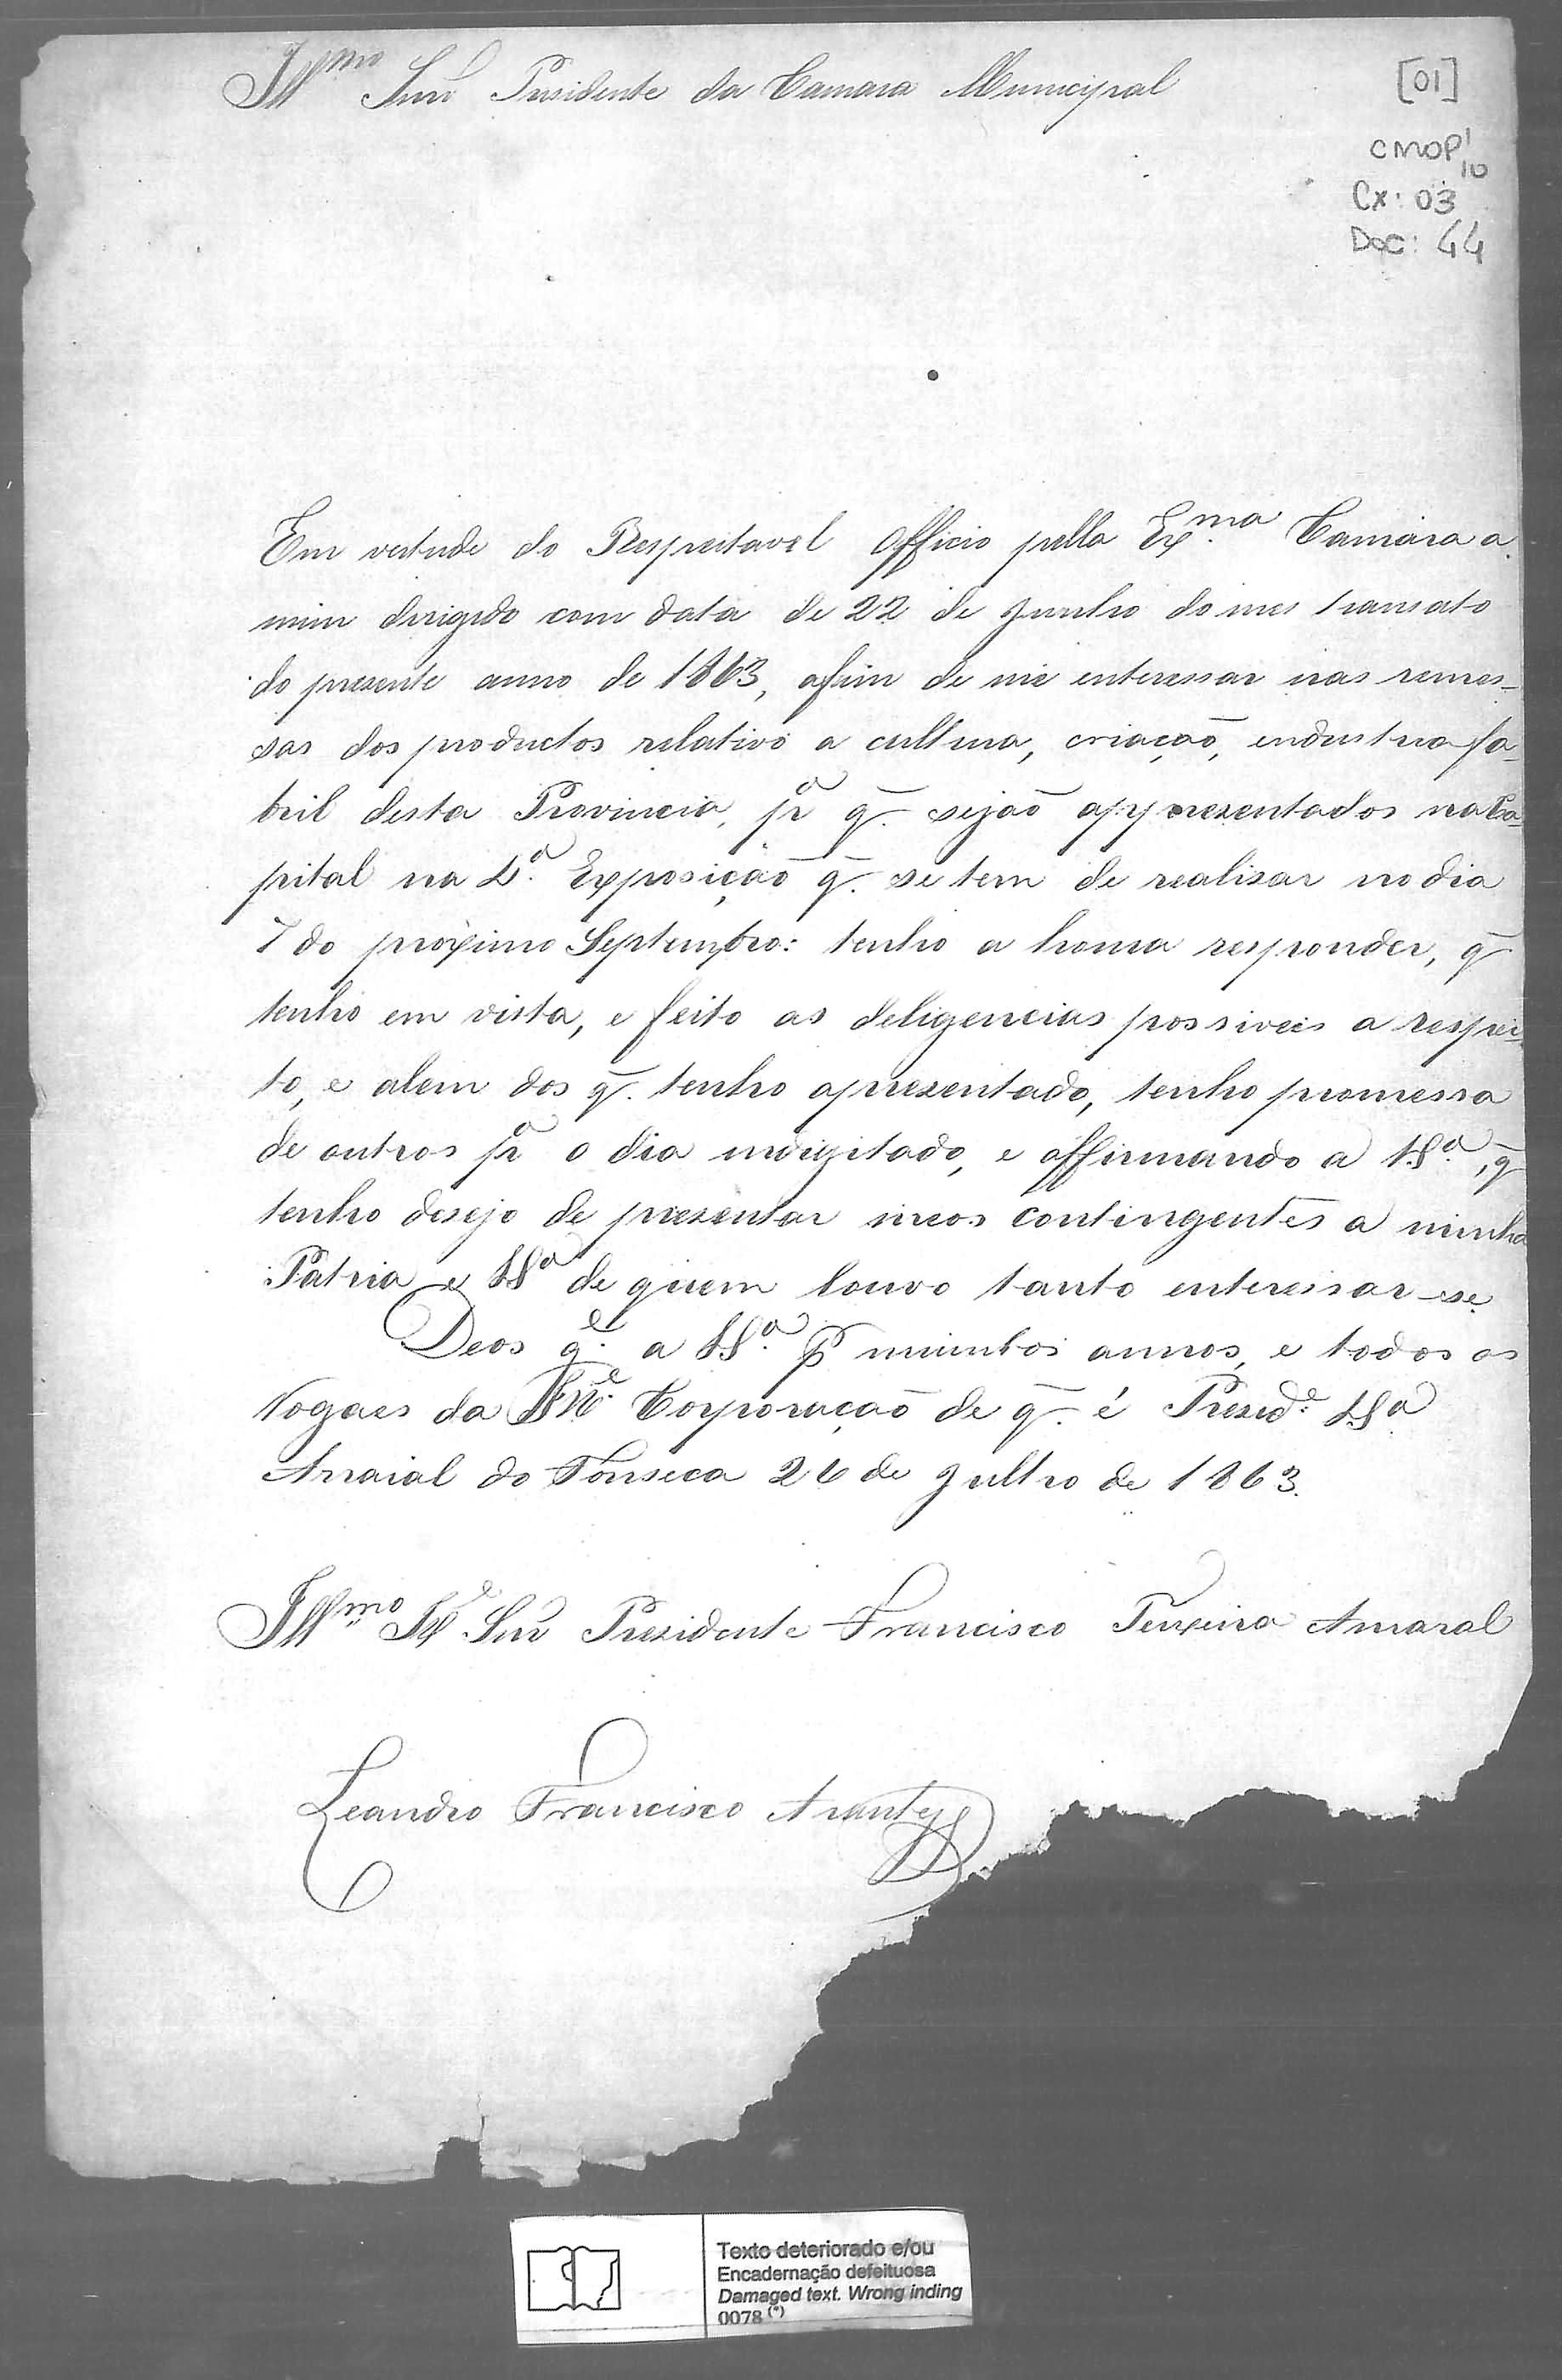 Illmo Snr Presidente da Camara Municipal
[01]
CMOP 1/10
Cx: 03
Doc: 44
Em vertude do Respeitavel Officio pella Exma. Camara a
mim derigido com data de 22 de Junho do mes transato
do presente anno de 1863, afim de me enteressar nas remes-
sas dos productos relativo a cultura, criação, endustria fa-
bril desta Provincia, pa. q̃. sejão appresentados na Ca-
pital na 2ª. Exposição q̃. se tem de realisar no dia
7 do proximo Septembro: tenho a honra responder, q̃
tenho em vista, e feito as deligencias possiveis a respei-
to, e alem dos q̃. tenho aprezentado, tenho promessa
de outros pa. o dia indigitado, e affirmando a VSa., q̃
tenho desejo de prezentar meos contingentes a minha
Patria e VSa de quem louvo tanto enteressar-se
Deos ge. a VSa. p muintos annos, e todos os
Vogaes da Corporação de q̃. é Prezide. VSa
Arraial do Fonseca 26 de Julho de 1863.
Illmo. Snr Prezidente Francisco Teixeira Amaral
Leandro Francisco Arantes
Texto deteriorado e/ou
Encadernação defeituosa
Damaged text. Wrong inding
0078 (*)